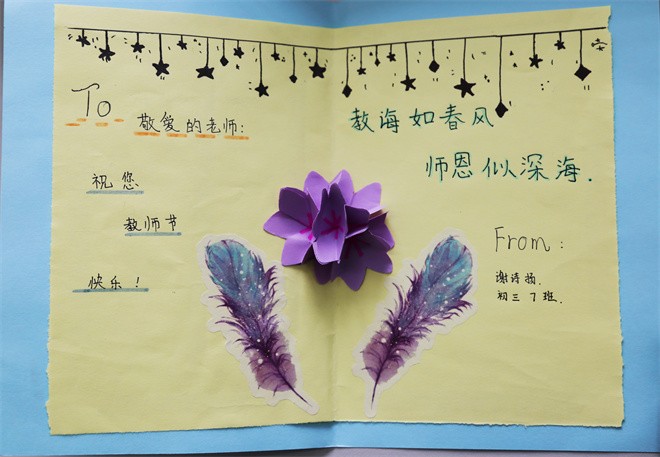 To
敬爱的老师:
祝您
教师节
快乐!
教诲如春风
师恩似深海.
From:
谢诗
初三7班.